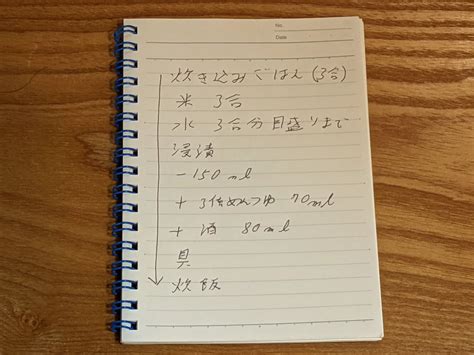 No.
Date
炊き込みごはん(3合)
米 3合
水 3合分目盛りまで
浸漬
- 150ml
+ 3倍めんつゆ 70ml
+ 酒 80ml
具
炊飯